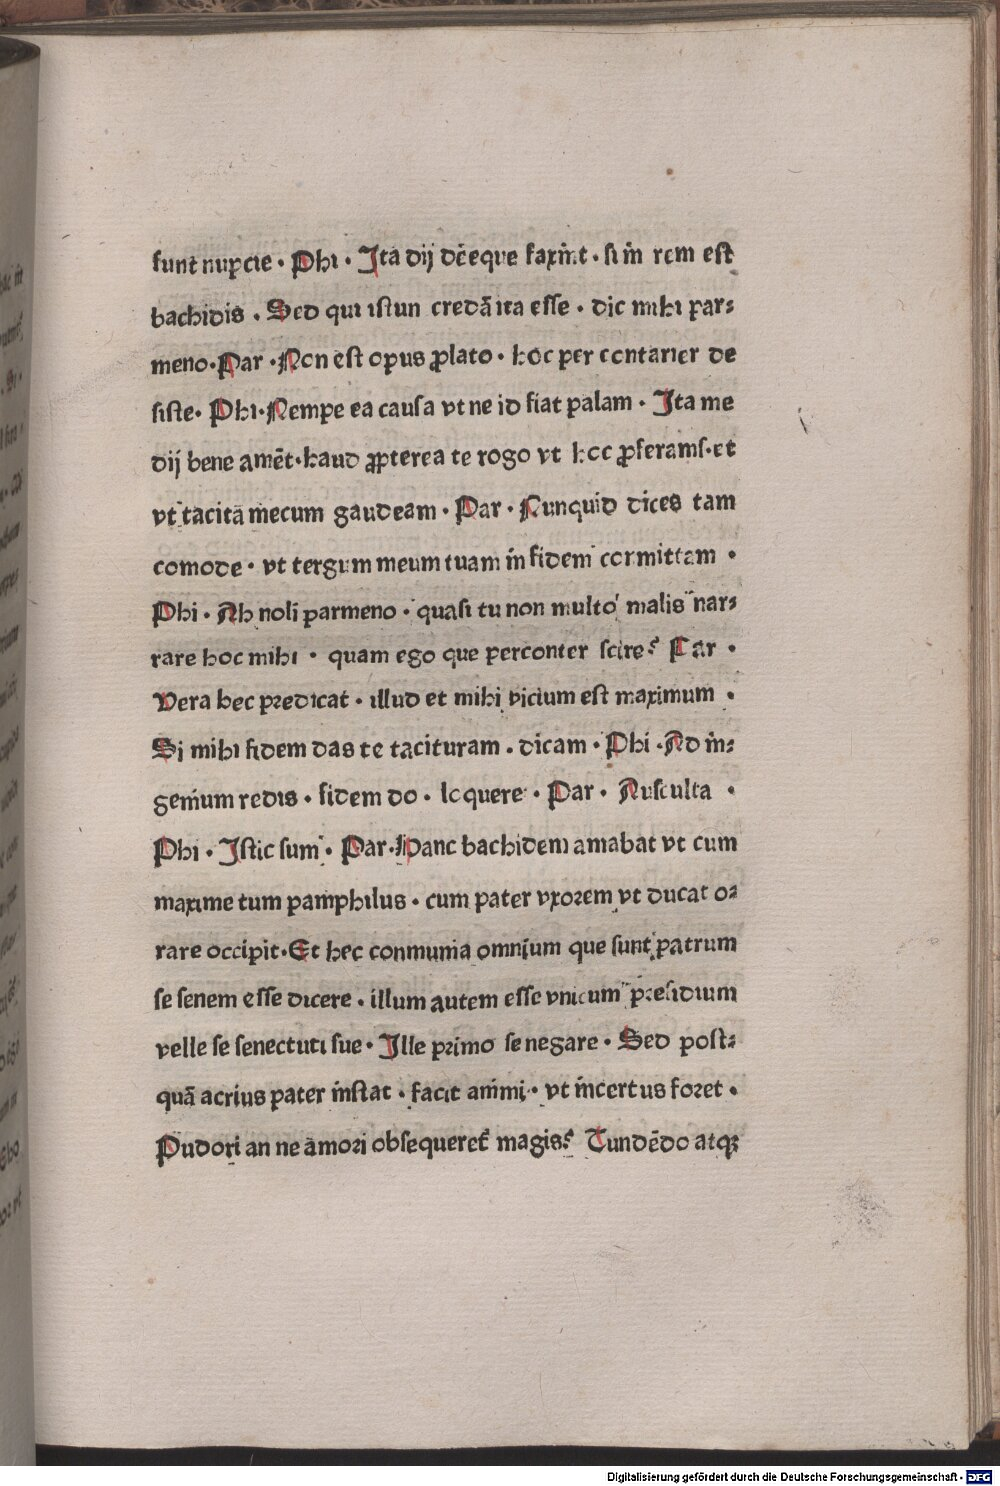 sunt nupcie · Phi · Ita dij deēque faxīt · si in rem est
bachidis · Sed qui istun credā ita esse · dic mihi par⸗
meno · Par · Non est opus ꝓlato · hoc per contarier de
siste · Phi · Nempe ea causa vt ne id fiat palam · Ita me
dij bene amēt · haud ꝓpterea te rogo vt hoc ꝓferams · et
vt tacitā mecum gaudeam · Par · Nunquid dices tam
comode · vt tergum meum tuam in fidem cormittam ·
Phi · Ah noli parmeno · quasi tu non multo malis nar⸗
rare hoc mihi · quam ego que perconter scire? Par ·
Vera hec predicat · illud et mihi vicium est maximum ·
Si mihi fidem das te tacituram · dicam · Phi · Ad in⸗
genium redis · fidem do · loquere · Par · Ausculta ·
Phi · Istic sum · Par · Hanc bachidem amabat vt cum
maxime tum pamphilus · cum pater vxorem vt ducat o⸗
rare occipit · Et hec conmunia omnium que sunt patrum
se senem esse dicere · illum autem esse vnicum presidium
velle se senectuti sue · Ille primo se negare · Sed post⸗
quā acrius pater instat · facit animi · vt incertus foret ·
Pudori an ne amori obsequeret᷑ magis? Tundēdo atqꝫ
Digitalisierung gefördert durch die Deutsche Forschungsgemeinschaft - DFG